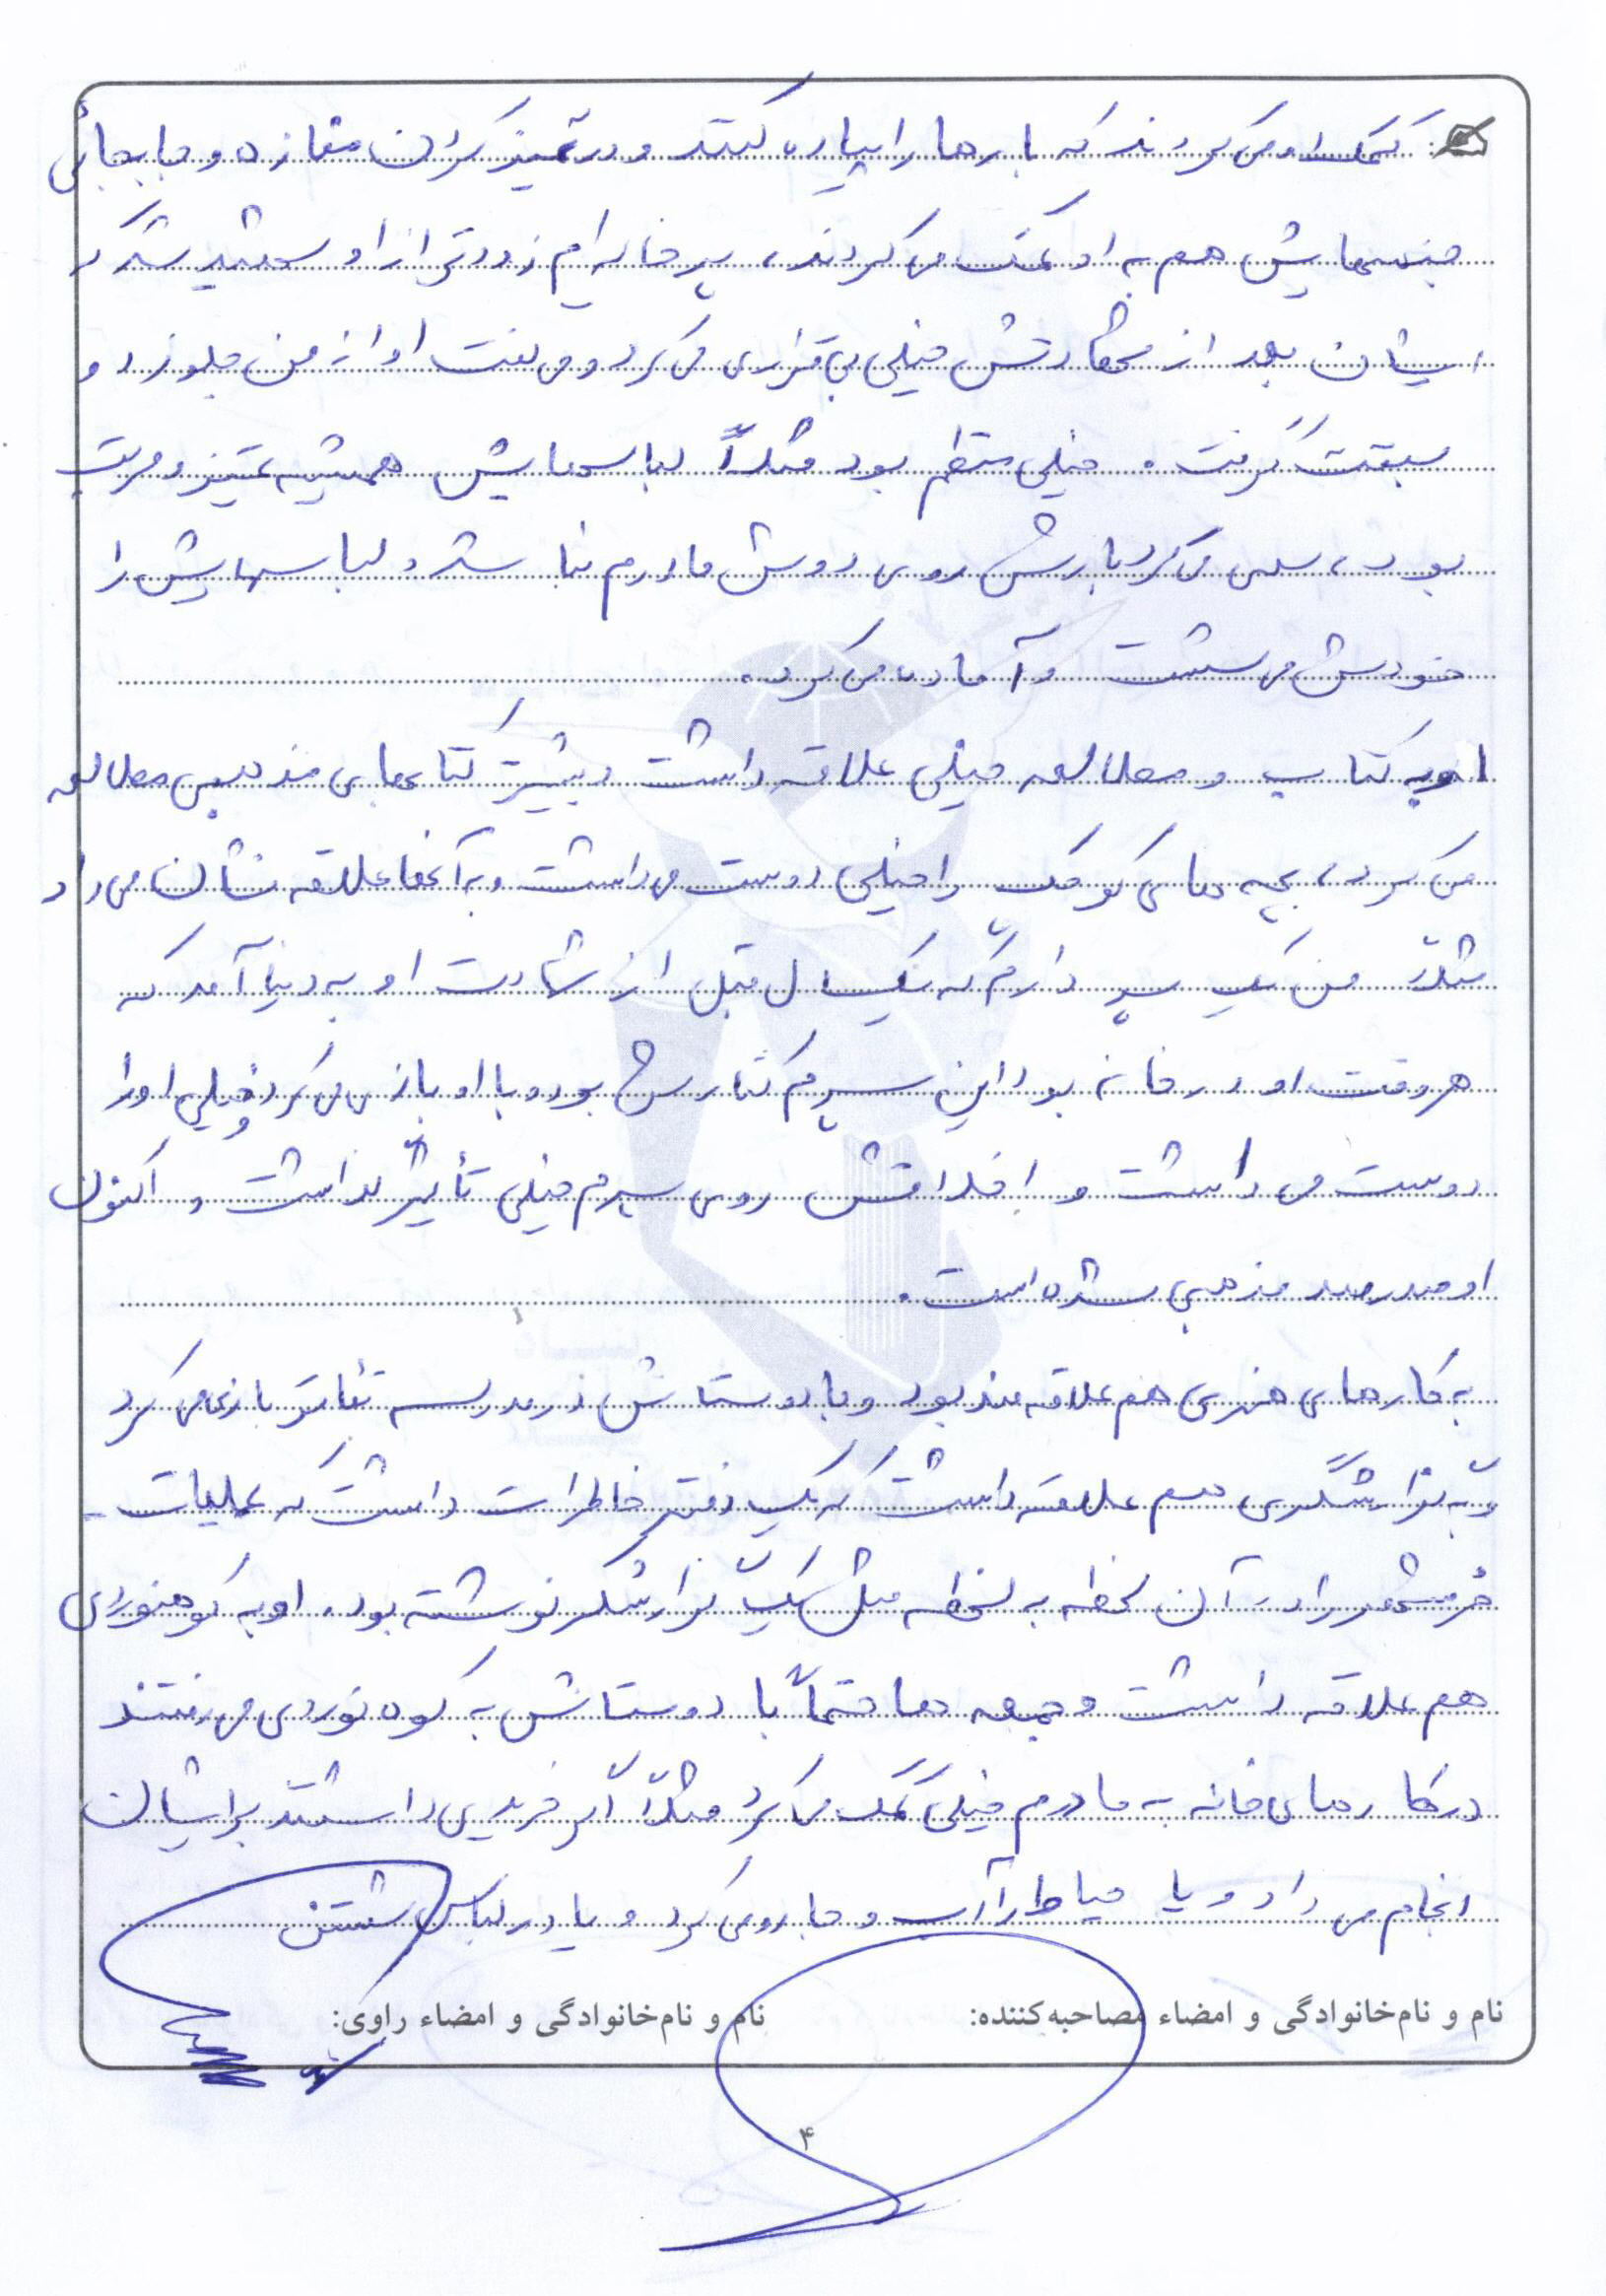 کمک او می‌کردند که بارها را پیاده کنند و در تمیز کردن مغازه و جابجائی
جنسهایش هم به او کمک می‌کردند، پسرخاله‌ام زودتر از او شهید شد که
ایشان بعد از شهادتش خیلی بی‌قراری می‌کرد و می‌گفت او از من جلو زد و
سبقت گرفت. خیلی منظم بود مثلاً لباسهایش همیشه تمیز و مرتب
بود، سعی می‌کرد بارش روی دوش مادرم نباشد و لباسهایش را
خودش می‌شست و آماده می‌کرد.
او به کتاب و مطالعه خیلی علاقه داشت و بیشتر کتابهای مذهبی مطالعه
می‌کرد، بچه های کوچک را خیلی دوست می‌داشت و به آنها علاقه نشان می‌داد
مثلاً من یک پسر دارم که یکسال قبل از شهادت او به دنیا آمد که
هر وقت او در خانه بود این پسرم کنارش بود و با او بازی می‌کرد و خیلی او را
دوست می‌داشت و اخلاقش روی پسرم خیلی تأثیر گذاشت و اکنون
او صددرصد مذهبی شده است.
به کارهای هنری هم علاقه‌مند بود و با دوستانش در مدرسه تئاتر بازی می‌کرد
و به گزارشگری هم علاقه داشت که یک دفتر خاطرات داشت که عملیات
خرمشهر را در آن لحظه به لحظه مثل یک گزارشگر نوشته بود. او به کوهنوردی
هم علاقه داشت و جمعه ها حتماً با دوستانش به کوه نوردی می‌رفتند
در کارهای خانه به مادرم خیلی کمک می‌کرد مثلاً اگر خریدی داشتند برایشان
انجام می‌داد و یا حیاط را آب و جارو می‌کرد و یا در لباس شستن
نام و نام‌خانوادگی و امضاء مصاحبه‌کننده: نام و نام‌خانوادگی و امضاء راوی:
۴